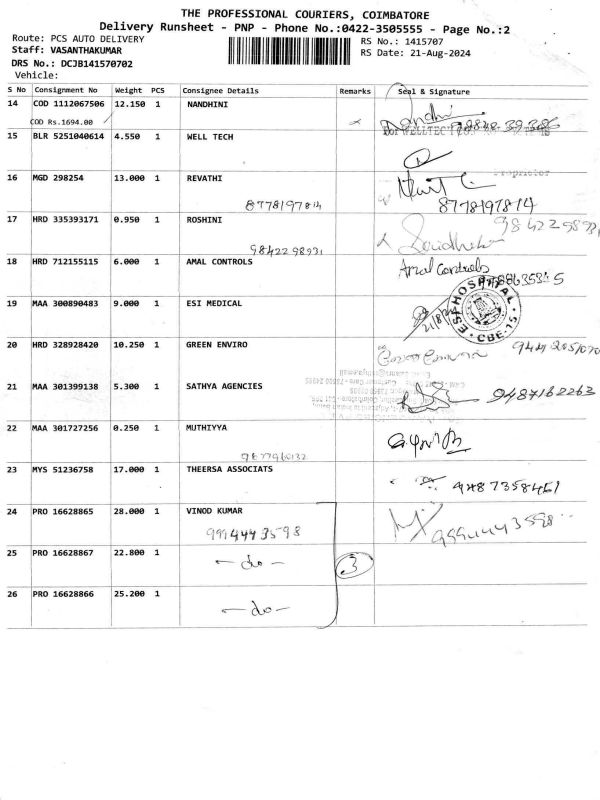 THE PROFESSIONAL COURIERS, COIMBATORE
Delivery Runsheet - PNP - Phone No.:0422-3505555 - Page No.:2
Route: PCS AUTO DELIVERY
RS No.: 1415707
Staff: VASANTHAKUMAR
RS Date: 21-Aug-2024
DRS No.: DCJB141570702
Vehicle:
S No Consignment No Weight PCS Consignee Details Remarks Seal & Signature
14 COD 1112067506 12.150 1 NANDHINI
COD Rs.1694.00
15 BLR 5251040614 4.550 1 WELL TECH
16 MGD 298254 13.000 1 REVATHI
8778197814 8778197814
17 HRD 335393171 0.950 1 ROSHINI
9842298931
18 HRD 712155115 6.000 1 AMAL CONTROLS Amal Controls
19 MAA 300890483 9.000 1 ESI MEDICAL
ESI HOSPITAL
CBE-15.
20 HRD 328928420 10.250 1 GREEN ENVIRO
21 MAA 301399138 5.300 1 SATHYA AGENCIES 9487162263
22 MAA 301727256 0.250 1 MUTHIYYA
23 MYS 51236758 17.000 1 THEERSA ASSOCIATS
9487358461
24 PRO 16628865 28.000 1 VINOD KUMAR
9994443598 9994443598
25 PRO 16628867 22.800 1 -do- 3
26 PRO 16628866 25.200 1 -do-